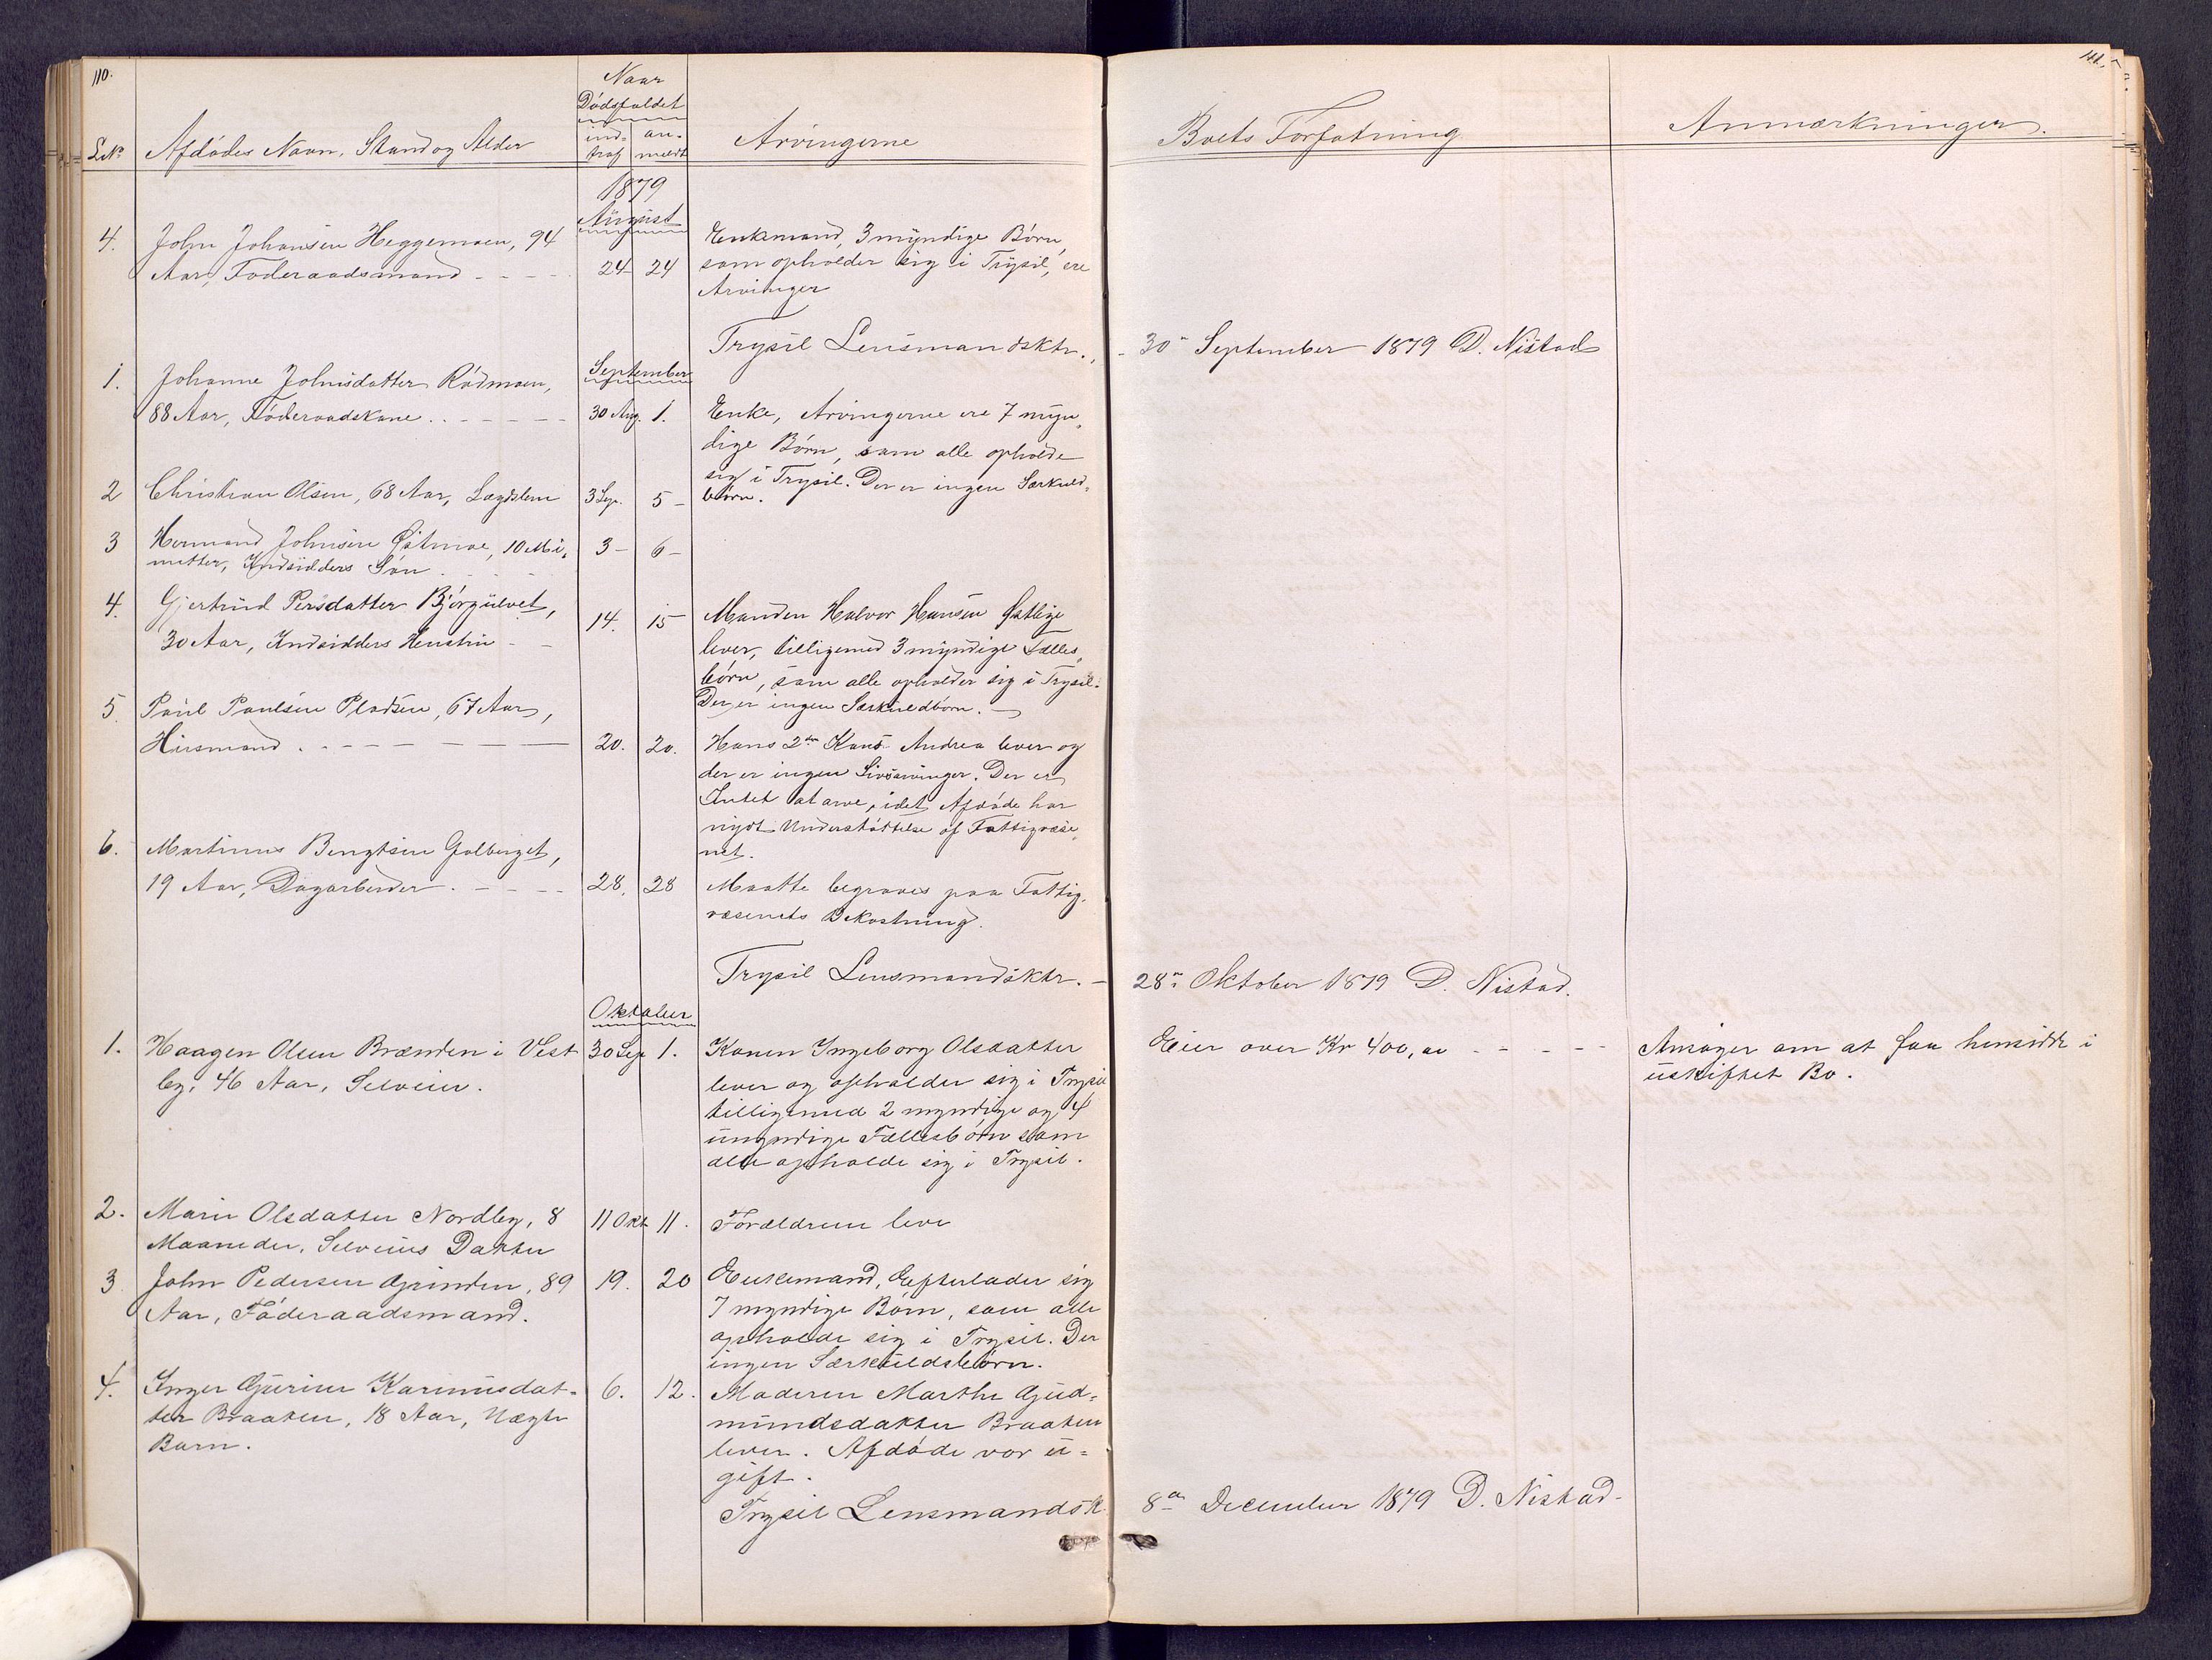 110.
111.
Naar
Dödsfaldet
ind-
traf
an-
meldt
L.No
Afdödes Navn, Stand og Alder
Arvingerne
Boets Forfatning
Anmærkninger.
1879
August
4.
John Johansen Heggemoen, 94
Aar, Foderaadsmand
24
24
Enkmand, 3 myndige Börn,
som opholder sig i Trysil, ere
Arvinger
Trysil Lensmandsktr.,
30 September 1879 D. Nistad
September
1.
Johanne Johnsdatter Rödmoen,
88 Aar, Föderaadskone
30 Aug.
1.
Enke, Arvingerne ere 7 myn„
dige Börn, som alle opholde
sig i Trysil. Der er ingen Særkuld„
börn.
2
Christian Olsen, 68 Aar, Lægdslem
3 Sep.
5
3
Hermand Johnsen Östmoe, 10 Mi„
nutter, Indsidders Sön
3
6
4.
Gjertrud Persdatter Björgulvet,
30 Aar, Indsidders Hustru
14.
15
Manden Halvor Hansen Östlige
lever, tilligemed 3 myndige Fælles„
börn, som alle opholder sig i Trysil.
Der er ingen Særkuldbörn.
5.
Paul Paulsen Pladsen, 67 Aar,
Husmand
20.
20.
Hans 2den Kone Andrea lever og
der er ingen Livsarvinger. Der er
Intet at arve, idet Afdöde har
nydt Understöttelse af Fattigvæse„
net.
6.
Martinus Bengtsen Galberget,
19 Aar, Dagarbeider
28.
28
Maatte begraves paa Fattig„
væsenets Bekostning.
Trysil Lensmandsktr.
28 Oktober 1879 D. Nistad.
Oktober
1.
Haagen Olsen Brænden i Vest
by, 46 Aar, Selveier.
30 Sep
1.
Konen Ingeborg Olsdatter
lever og opholder sig i Trysil
tilligemed 2 myndige og 4
umyndige Fællesbörn som
alle opholde sig i Trysil.
Eier over Kr 400,00
Ansöger om at faa hensidde i
uskiftet Bo.
2.
Marie Olsdatter Nordby, 8
Maaneder, Selveiers Datter
11 Okt
11.
Forældrene leve
3
John Pedersen Grinden, 89
Aar, Föderaadsmand.
19.
20
Enkemand, Efterlader sig
7 myndige Börn, som alle
opholde sig i Trysil. Der
ingen Særkuldsbörn.
4.
Inger Gurine Karinusdat-
ter Braaten, 18 Aar, Uægte
Barn.
6.
12.
Moderen Marthe Gud-
mundsdatter Braaten
lever. Afdöde var u-
gift.
Trysil Lensmandsk
8de December 1879 D. Nistad